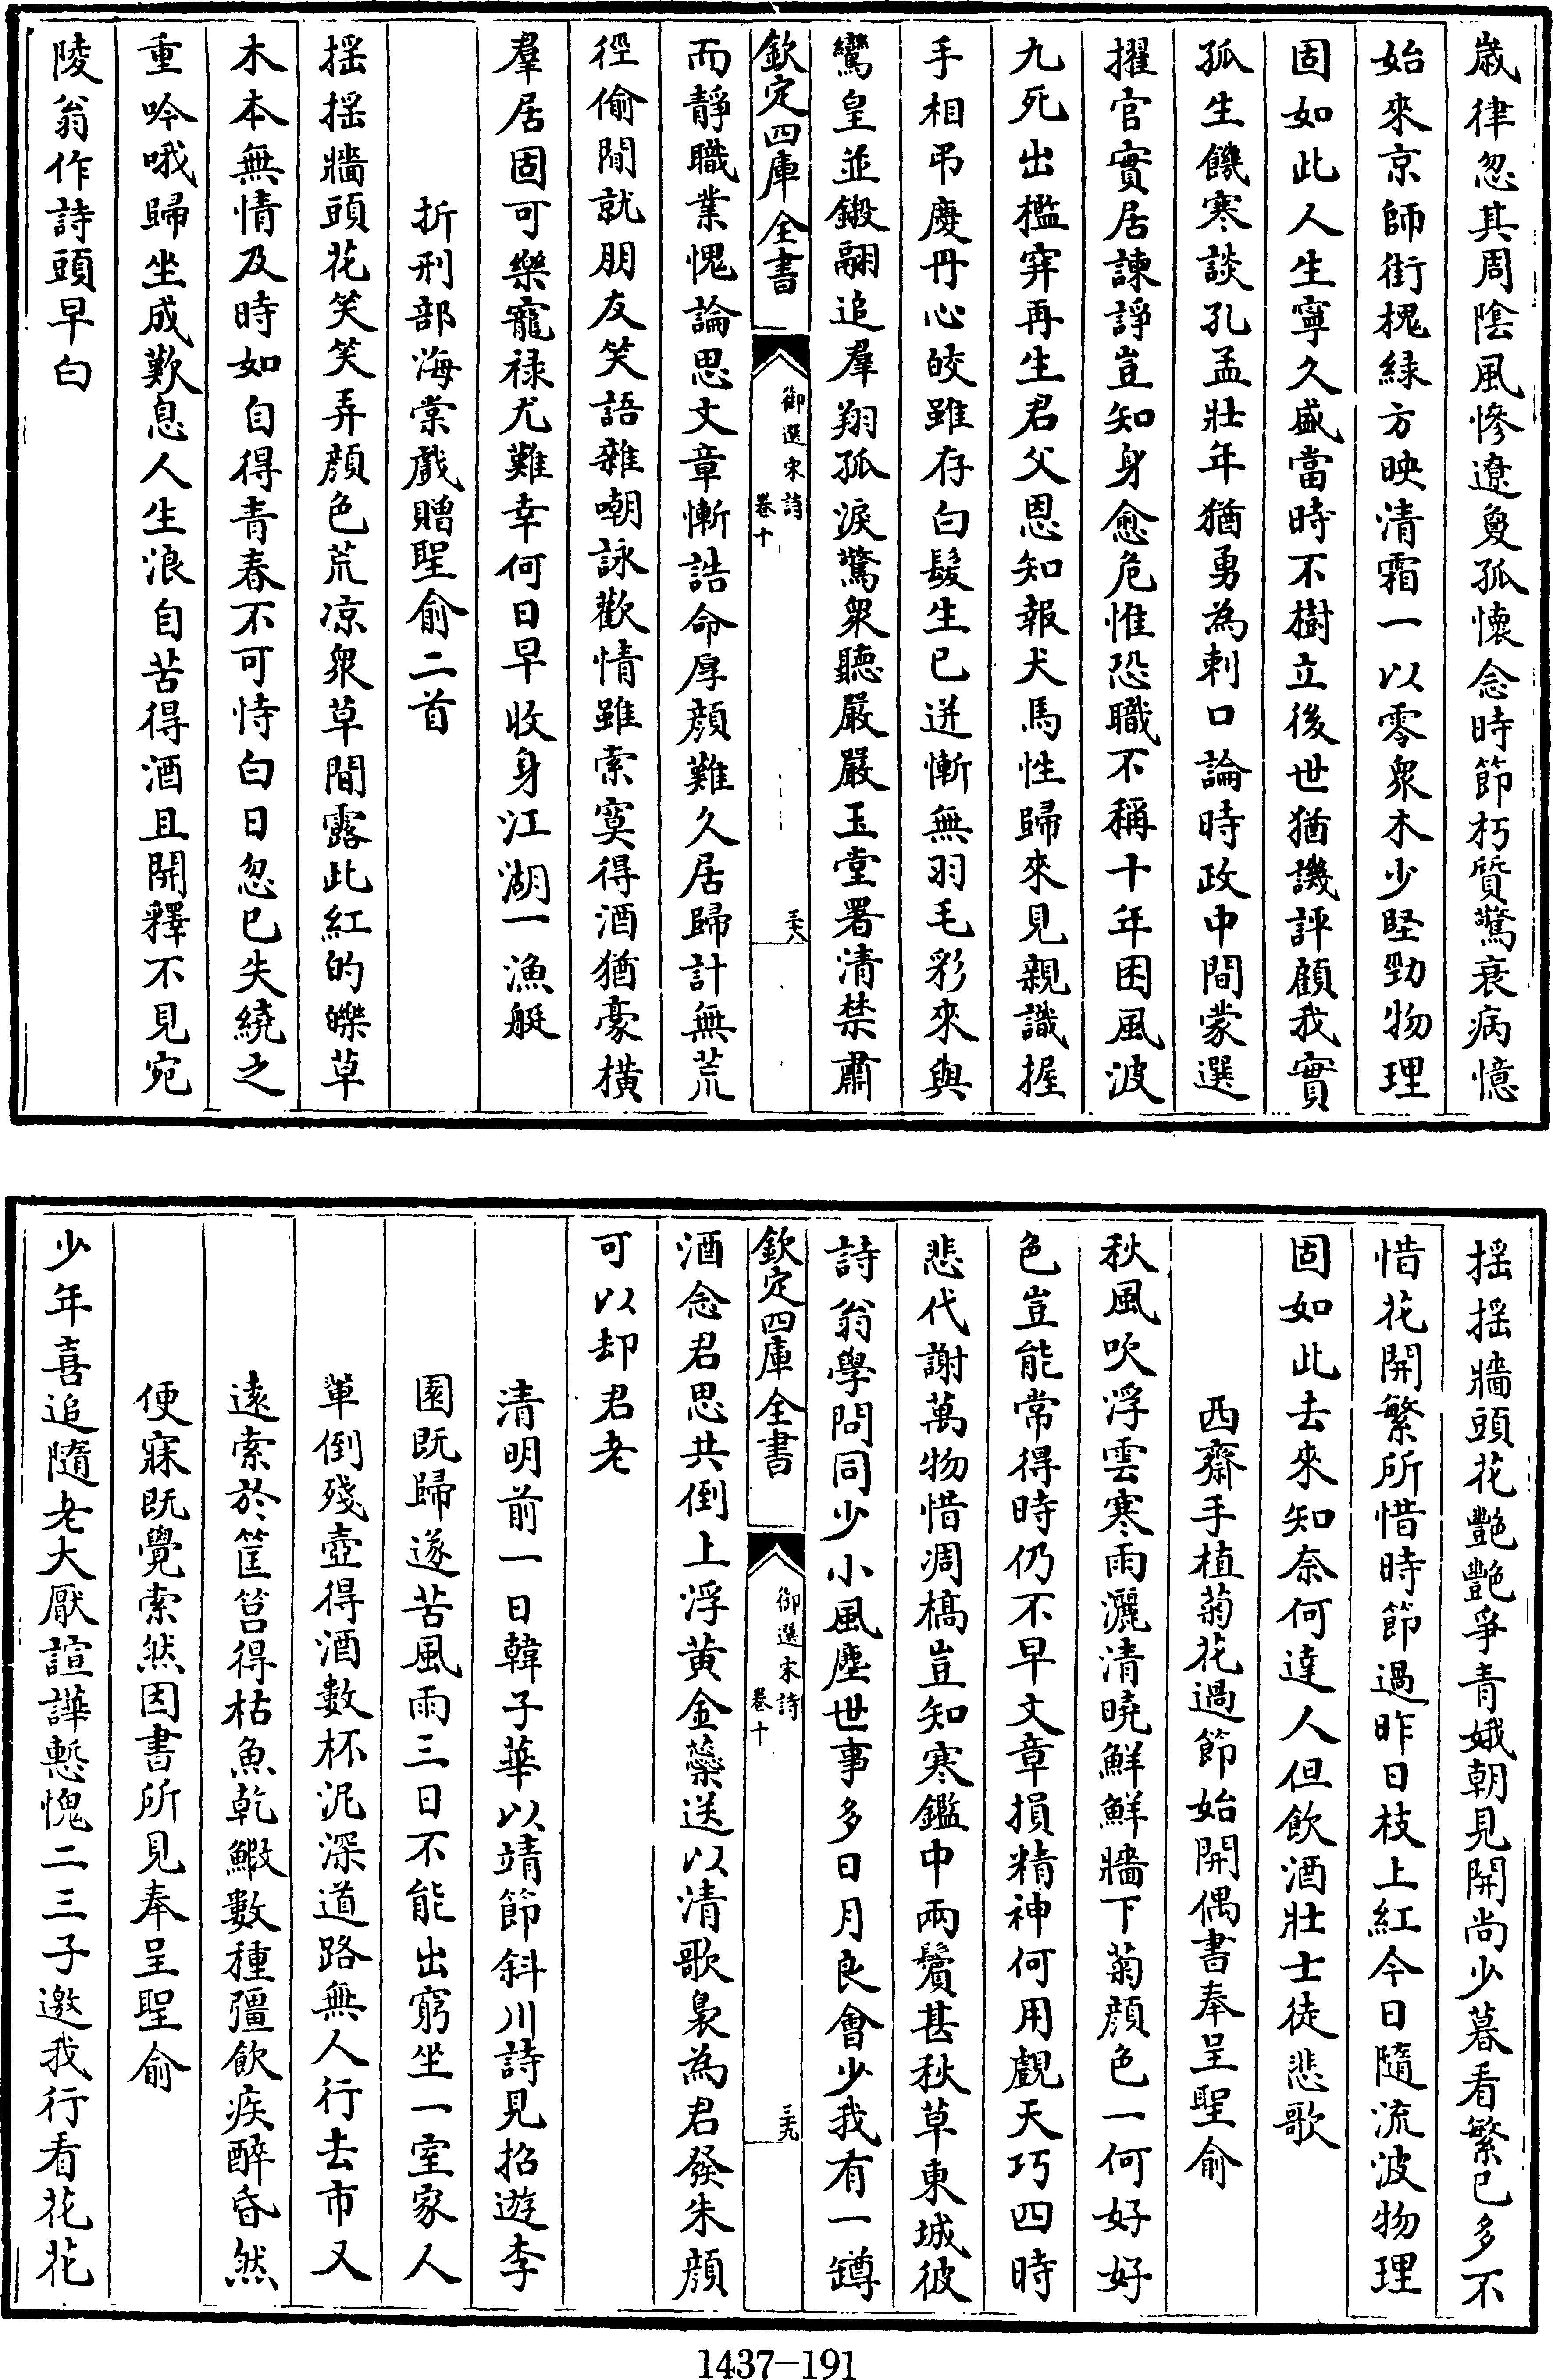 歲律忽其周陰風慘遼夐孤懷念時節朽質驚衰病憶
始來京師街槐綠方映清霜一以零衆木少堅勁物理
固如此人生寧久盛當時不樹立後世猶譏評顧我實
孤生饑寒談孔孟壯年猶勇為刺口論時政中間蒙選
擢官實居諫諍豈知身愈危惟恐職不稱十年困風波
九死出檻穽再生君父恩知報犬馬性歸來見親識握
手相弔慶丹心皎雖存白髮生已迸慚無羽毛彩來與
鸞皇並鎩翮追羣翔孤淚驚衆聽嚴嚴玉堂署清禁肅
欽定四庫全書
御選宋詩
卷十
三十八
而靜職業愧論思文章慚誥命厚顏難久居歸計無荒
徑偷閒就朋友笑語雜嘲詠歡情雖索寞得酒猶豪橫
羣居固可樂寵祿尤難幸何日早收身江湖一漁艇
折刑部海棠戲贈聖俞二首
搖搖牆頭花笑笑弄顏色荒凉衆草間露此紅的皪草
木本無情及時如自得青春不可恃白日忽已失繞之
重吟哦歸坐成歎息人生浪自苦得酒且開釋不見宛
陵翁作詩頭早白
搖搖牆頭花艷艷爭青娥朝見開尚少暮看繁已多不
惜花開繁所惜時節過昨日枝上紅今日隨流波物理
固如此去來知奈何達人但飲酒壯士徒悲歌
西齋手植菊花過節始開偶書奉呈聖俞
秋風吹浮雲寒雨灑清曉鮮鮮牆下菊顏色一何好好
色豈能常得時仍不早文章損精神何用覷天巧四時
悲代謝萬物惜凋槁豈知寒鑑中兩鬢甚秋草東城彼
詩翁學問同少小風塵世事多日月良會少我有一罇
欽定四庫全書
御選宋詩
卷十
三十九
酒念君思共倒上浮黃金蘂送以清歌裊為君發朱顏
可以却君老
清明前一日韓子華以靖節斜川詩見招遊李
園既歸遂苦風雨三日不能出窮坐一室家人
輩倒殘壺得酒數杯泥深道路無人行去市又
遠索於筐筥得枯魚乾鰕數種彊飲疾醉昏然
便寐既覺索然因書所見奉呈聖俞
少年喜追隨老大厭諠譁慙愧二三子邀我行看花花
1437-191